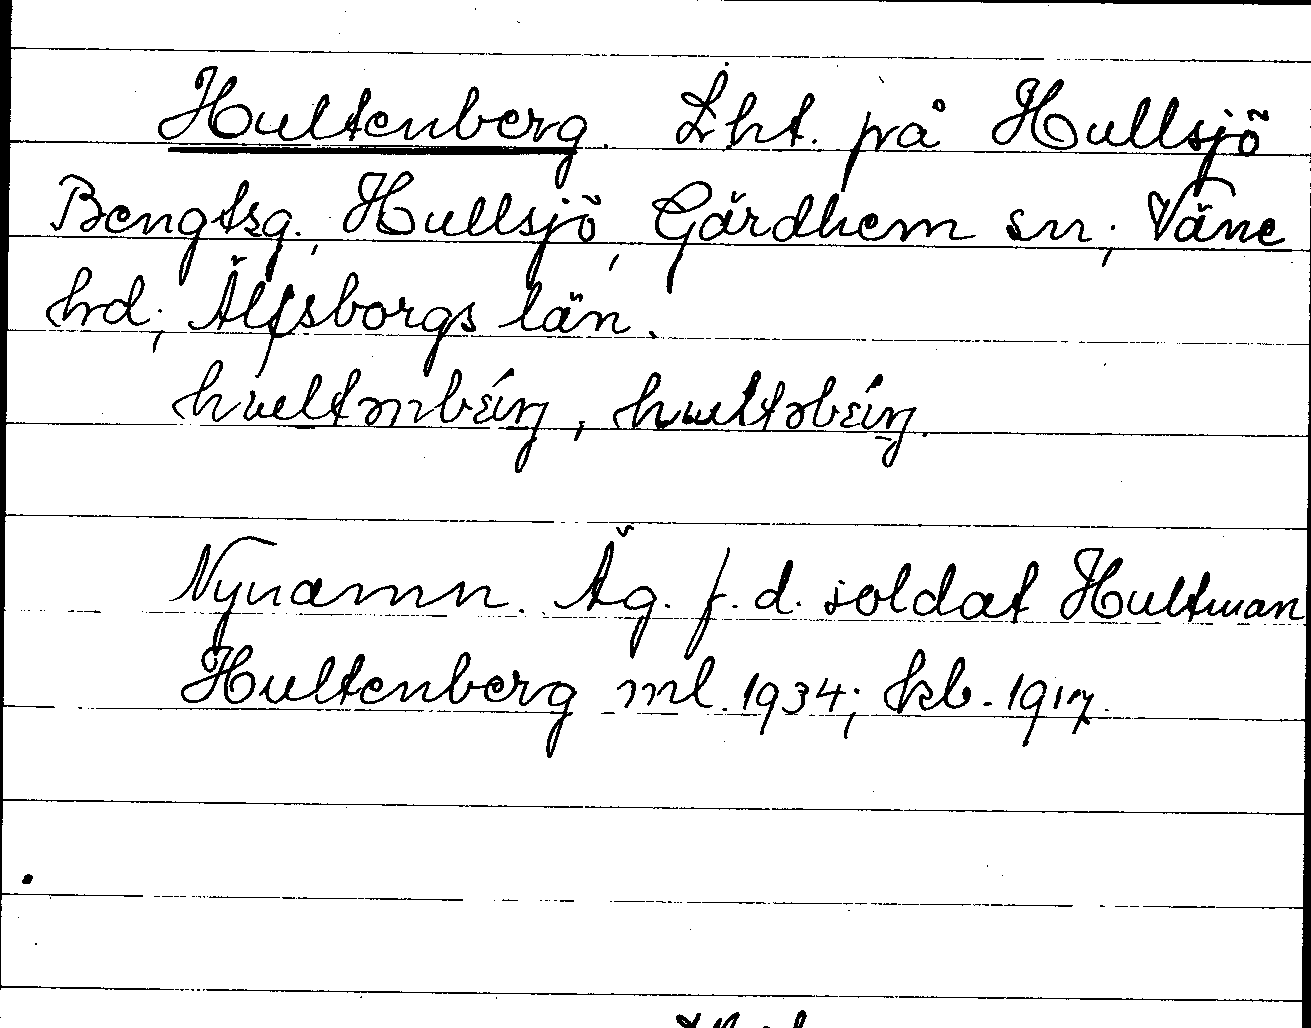 Hultenberg. Lht. på Hullsjö
Bengtsg., Hullsjö, Gärdhem sn; Väne
hd; Älfsborgs län.

Nynamn. Äg. f. d. soldat Hultman
Hultenberg ml. 1934; kb. 1917.